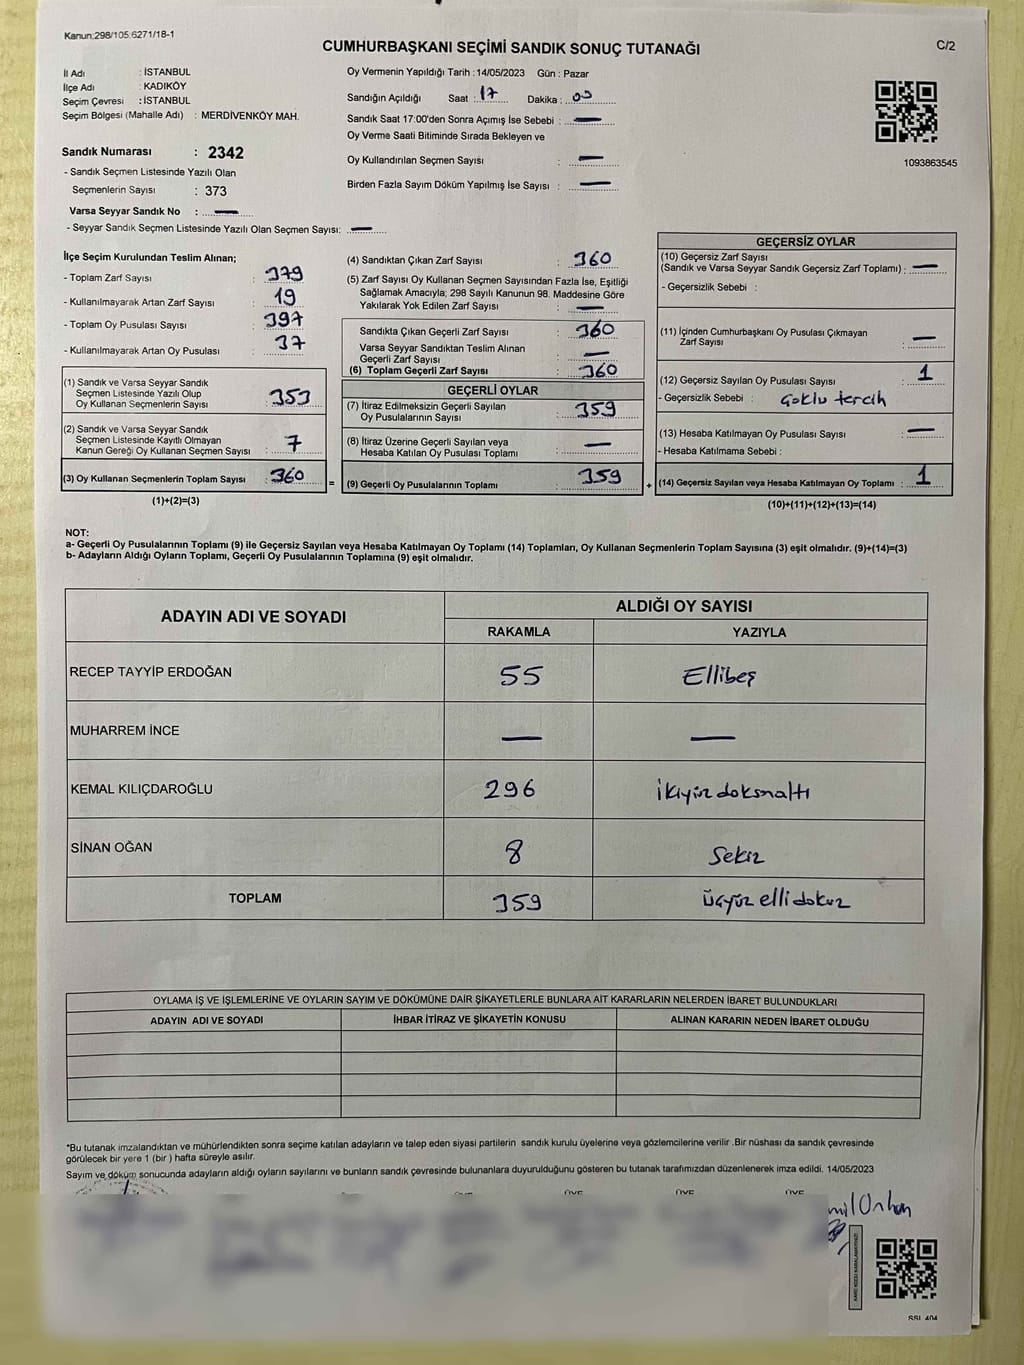 Kanun:298/105:6271/18-1
CUMHURBAŞKANI SEÇİMİ SANDIK SONUÇ TUTANAĞI
C/2
İl Adı : İSTANBUL
İlçe Adı : KADIKÖY
Seçim Çevresi : İSTANBUL
Seçim Bölgesi (Mahalle Adı) : MERDİVENKÖY MAH.
Sandık Numarası : 2342
- Sandık Seçmen Listesinde Yazılı Olan
Seçmenlerin Sayısı : 373
Varsa Seyyar Sandık No : —
- Seyyar Sandık Seçmen Listesinde Yazılı Olan Seçmen Sayısı: —
Oy Vermenin Yapıldığı Tarih : 14/05/2023 Gün : Pazar
Sandığın Açıldığı Saat : 17 Dakika : 00
Sandık Saat 17:00'den Sonra Açımış İse Sebebi : —
Oy Verme Saati Bitiminde Sırada Bekleyen ve
Oy Kullandırılan Seçmen Sayısı : —
Birden Fazla Sayım Döküm Yapılmış İse Sayısı : —
1093863545
İlçe Seçim Kurulundan Teslim Alınan;
- Toplam Zarf Sayısı : 379
- Kullanılmayarak Artan Zarf Sayısı : 19
- Toplam Oy Pusulası Sayısı : 397
- Kullanılmayarak Artan Oy Pusulası : 37
(1) Sandık ve Varsa Seyyar Sandık
Seçmen Listesinde Yazılı Olup
Oy Kullanan Seçmenlerin Sayısı : 353
(2) Sandık ve Varsa Seyyar Sandık
Seçmen Listesinde Kayıtlı Olmayan
Kanun Gereği Oy Kullanan Seçmen Sayısı : 7
(3) Oy Kullanan Seçmenlerin Toplam Sayısı : 360
(1)+(2)=(3)
=
(4) Sandıktan Çıkan Zarf Sayısı : 360
(5) Zarf Sayısı Oy Kullanan Seçmen Sayısından Fazla İse, Eşitliği
Sağlamak Amacıyla; 298 Sayılı Kanunun 98. Maddesine Göre
Yakılarak Yok Edilen Zarf Sayısı : —
Sandıkta Çıkan Geçerli Zarf Sayısı : 360
Varsa Seyyar Sandıktan Teslim Alınan
Geçerli Zarf Sayısı : —
(6) Toplam Geçerli Zarf Sayısı : 360
GEÇERLİ OYLAR
(7) İtiraz Edilmeksizin Geçerli Sayılan
Oy Pusulalarının Sayısı : 359
(8) İtiraz Üzerine Geçerli Sayılan veya
Hesaba Katılan Oy Pusulası Toplamı : —
(9) Geçerli Oy Pusulalarının Toplamı : 359
+
GEÇERSİZ OYLAR
(10) Geçersiz Zarf Sayısı
(Sandık ve Varsa Seyyar Sandık Geçersiz Zarf Toplamı) : —
- Geçersizlik Sebebi :
(11) İçinden Cumhurbaşkanı Oy Pusulası Çıkmayan
Zarf Sayısı : —
(12) Geçersiz Sayılan Oy Pusulası Sayısı : 1
- Geçersizlik Sebebi : Çoklu tercih
(13) Hesaba Katılmayan Oy Pusulası Sayısı : —
- Hesaba Katılmama Sebebi :
(14) Geçersiz Sayılan veya Hesaba Katılmayan Oy Toplamı : 1
(10)+(11)+(12)+(13)=(14)
NOT:
a- Geçerli Oy Pusulalarının Toplamı (9) ile Geçersiz Sayılan veya Hesaba Katılmayan Oy Toplamı (14) Toplamları, Oy Kullanan Seçmenlerin Toplam Sayısına (3) eşit olmalıdır. (9)+(14)=(3)
b- Adayların Aldığı Oyların Toplamı, Geçerli Oy Pusulalarının Toplamına (9) eşit olmalıdır.
ADAYIN ADI VE SOYADI
ALDIĞI OY SAYISI
RAKAMLA YAZIYLA
RECEP TAYYİP ERDOĞAN 55 Ellibeş
MUHARREM İNCE — —
KEMAL KILIÇDAROĞLU 296 ikiyüz doksnaltı
SİNAN OĞAN 8 Sekiz
TOPLAM 359 üçyüz ellidokuz
OYLAMA İŞ VE İŞLEMLERİNE VE OYLARIN SAYIM VE DÖKÜMÜNE DAİR ŞİKAYETLERLE BUNLARA AİT KARARLARIN NELERDEN İBARET BULUNDUKLARI
ADAYIN ADI VE SOYADI İHBAR İTİRAZ VE ŞİKAYETİN KONUSU ALINAN KARARIN NEDEN İBARET OLDUĞU
*Bu tutanak imzalandıktan ve mühürlendikten sonra seçime katılan adayların ve talep eden siyasi partilerin sandık kurulu üyelerine veya gözlemcilerine verilir .Bir nüshası da sandık çevresinde
görülecek bir yere 1 (bir ) hafta süreyle asılır.
Sayım ve döküm sonucunda adayların aldığı oyların sayılarını ve bunların sandık çevresinde bulunanlara duyurulduğunu gösteren bu tutanak tarafımızdan düzenlenerek imza edildi. 14/05/2023
ÜYE ÜYE ÜYE
mil Orhan
SSI 404